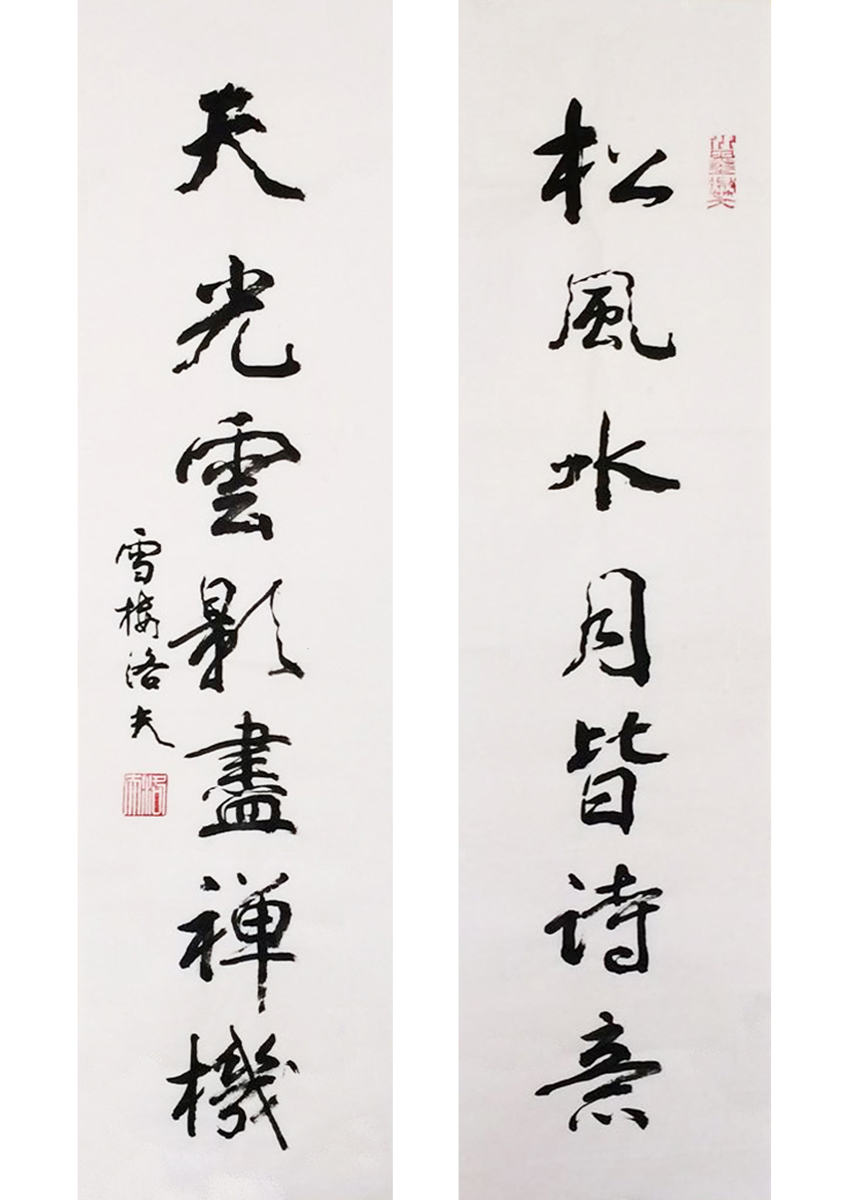 松風水月皆诗意
天光雲影盡禅機
雪楼洛夫